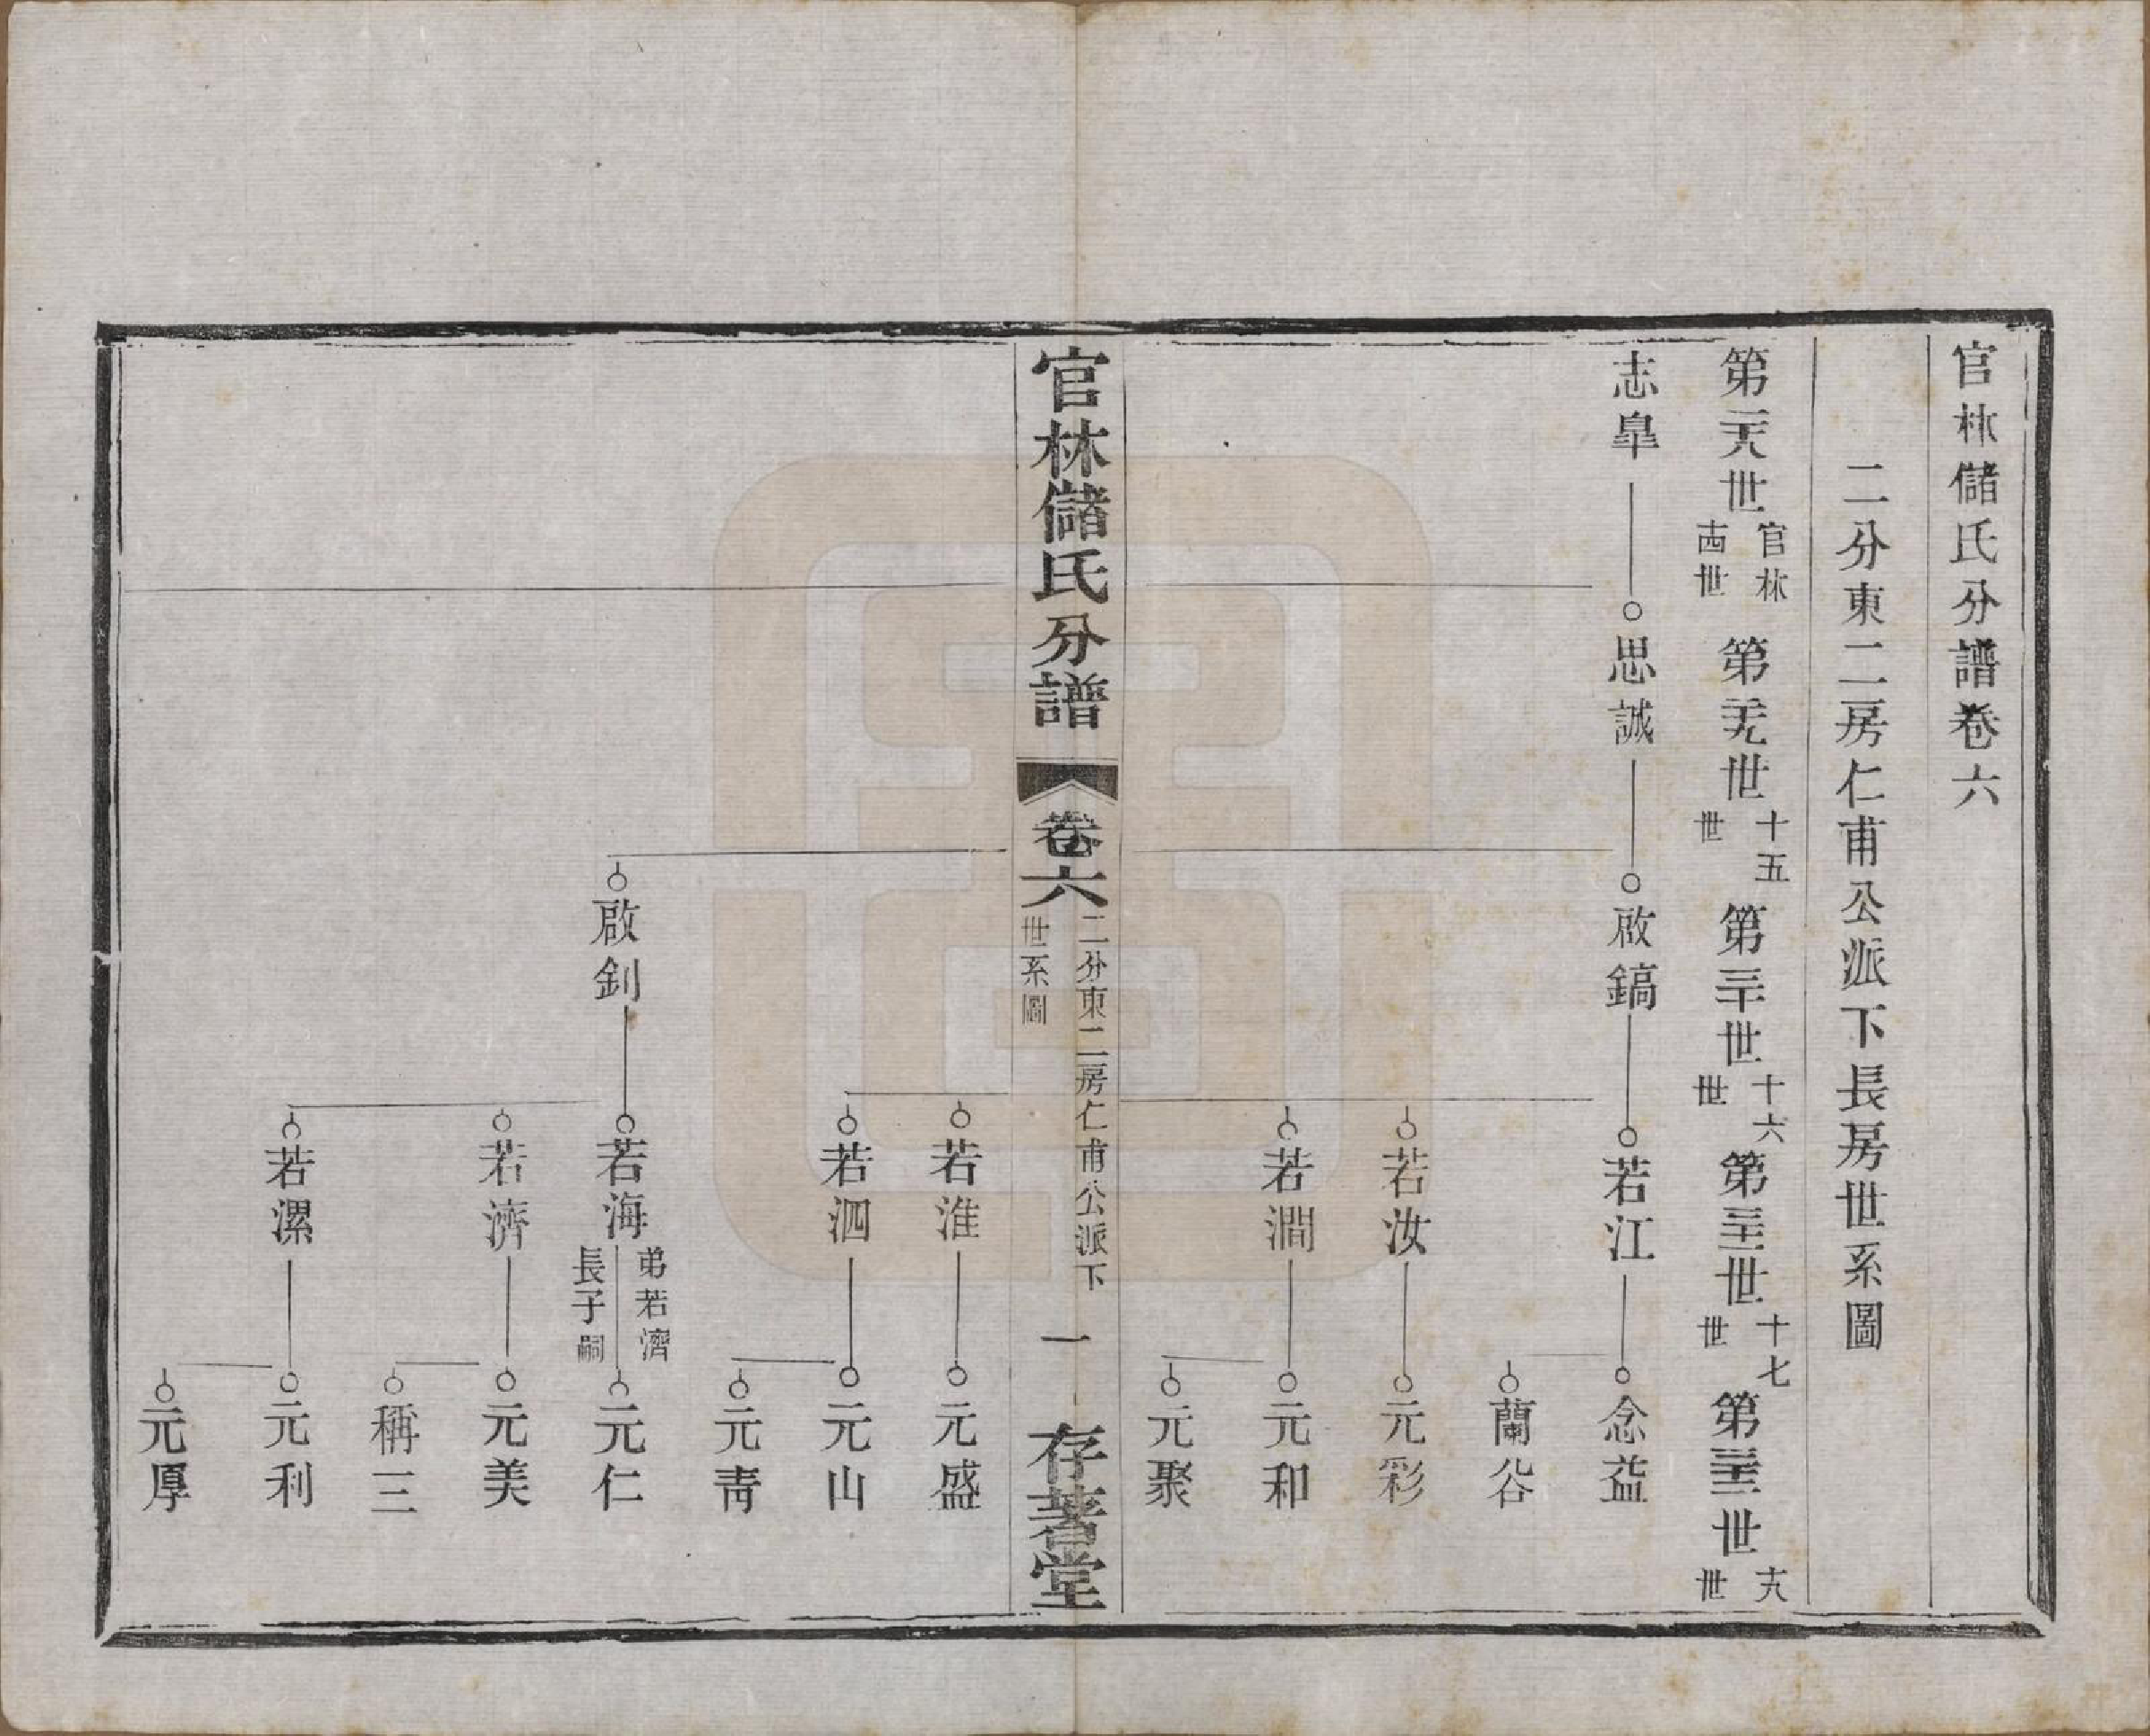 官林儲氏分譜卷六
二分東二房仁甫公派下長房世系圖
第二十八世 官林十四世 第二十九世 十五世 第三十世 十六世 第三十一世 十七世 第三十二世 十八世
志皐 思誠 啟鎬 若江 念益
蘭谷
若汝 元彩
若澗 元和
元聚
官林儲氏分譜 卷六 二分東二房仁甫公派下世系圖 一 存著堂
若淮 元盛
若泗 元山
元靑
啟釗 若海 弟若濟長子嗣 元仁
若濟 元美
稱三
若漯 元利
元厚